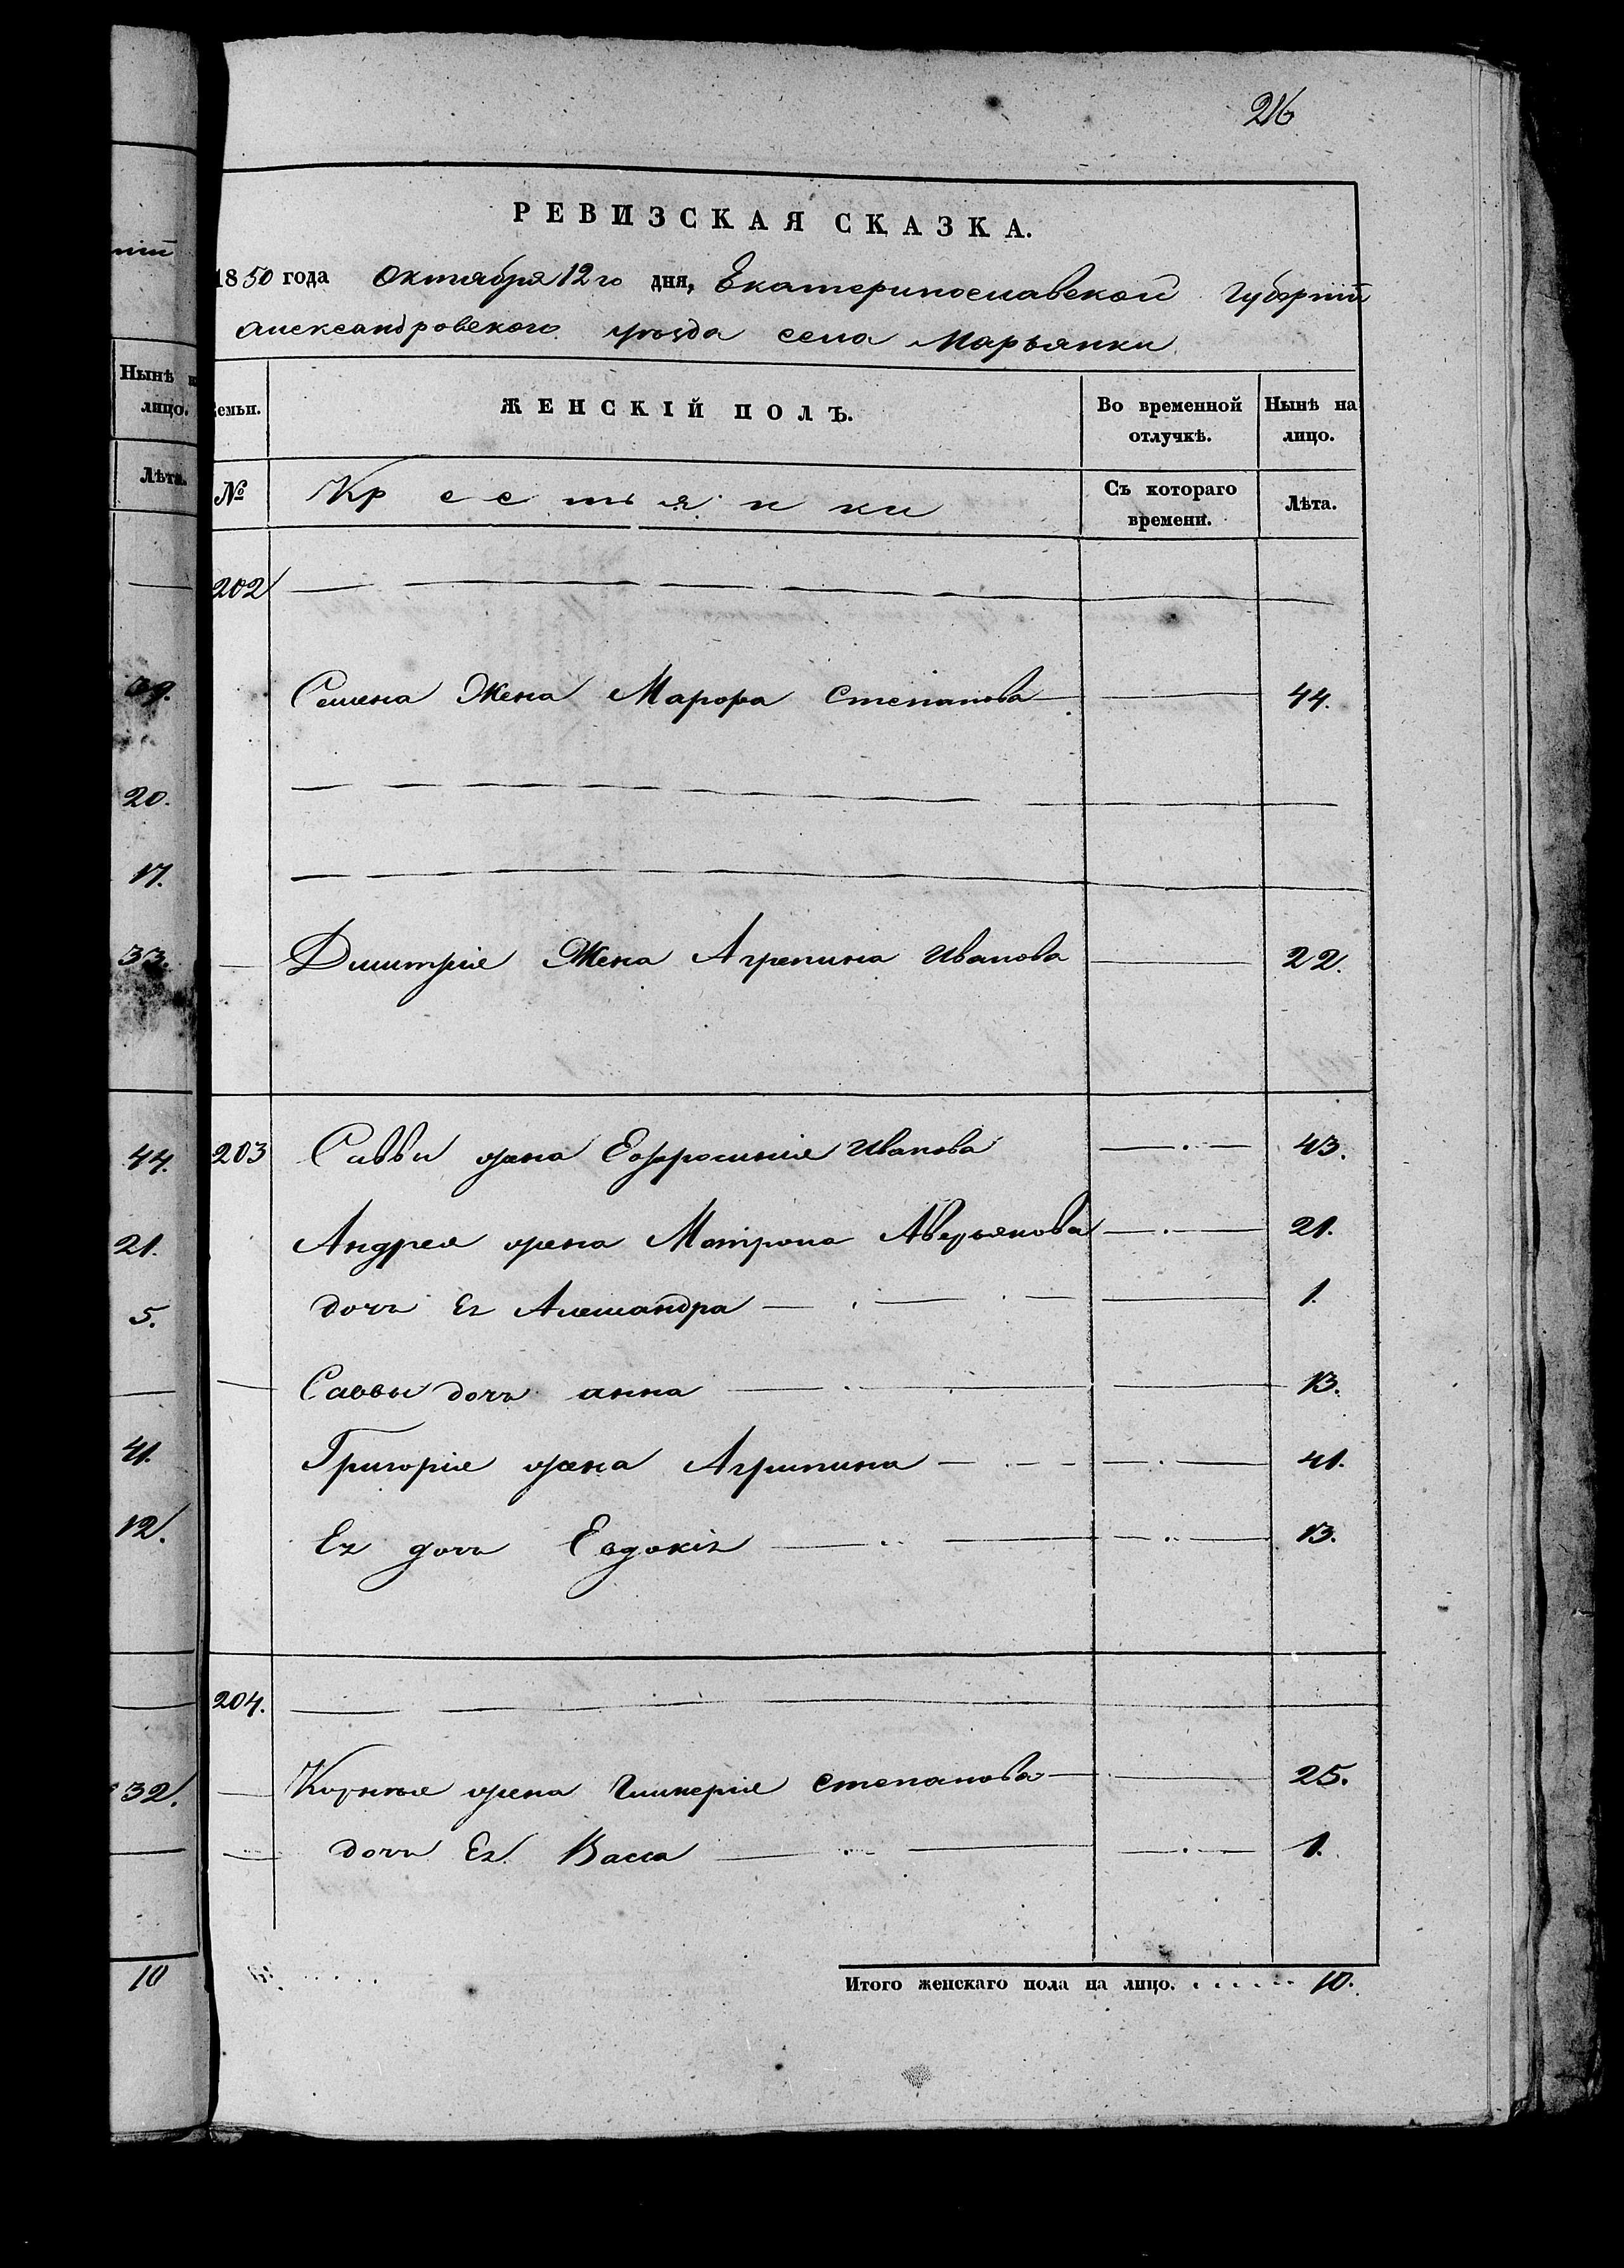 216
РЕВИЗСКАЯ СКАЗКА.
1850 года Октября 12го дня, Екатеринославской Губерніи
Александровского уѣзда села Марьянки
Нынѣ
лицо.
Лѣта.
20.
17.
33.
44.
21.
5.
41.
12.
32.
10
Семьи. ЖЕНСКІЙ ПОЛЪ. Во временной отлучкѣ. Нынѣ на лицо.
№ Крестьянки Съ котораго времени. Лѣта.
202
Семена Жена Марфа Степанова 44.
Дмитрія Жена Агрепина Иванова 22.
203 Саввы жена Ефросинія Иванова 43.
Андрея жена Матрона Аверьянова 21.
дочь Ея Александра 1.
Саввы дочь анна 13.
Григорія жена Агрипина 41.
Ея дочь Евдокія 13.
204.
Корнѣя жена Гликерія Степанова 25.
дочь Ея Васса 1.
Итого женскаго пола на лицо. . . . . . . 10.